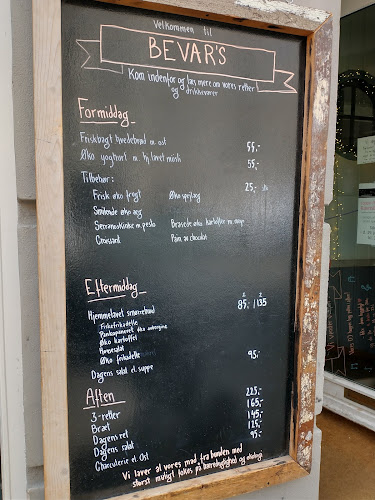 Velkommen til
BEVAR'S
Kom indenfor og læs mere om vores retter
og drikkevarer
Formiddag
Friskbagt hvedebrød m. ost 55,-
Øko yoghurt m. hj. lavet müsli 55,-
Tilbehør: 25,- stk
Frisk øko frugt Øko spejlæg
Smilende øko æg Braserede øko kartofler m. mayo
Serranoskinke m. pesto Pain au chocolat
Croissant
Eftermiddag
2 3
Hjemmelavet smørrebrød 85,- / 135
Fiskefrikadelle
Pankopaneret øko aubergine
Øko kartoffel
Hønsesalat
Øko frikadelle
Dagens salat el. suppe 95,-
Aften
3-retter 225,-
Bræt 165,-
Dagens ret 145,-
Dagens salat 125,-
Charcuterie el. Ost 95,-
Vi laver al vores mad fra bunden med
størst muligt fokus på bæredygtighed og økologi